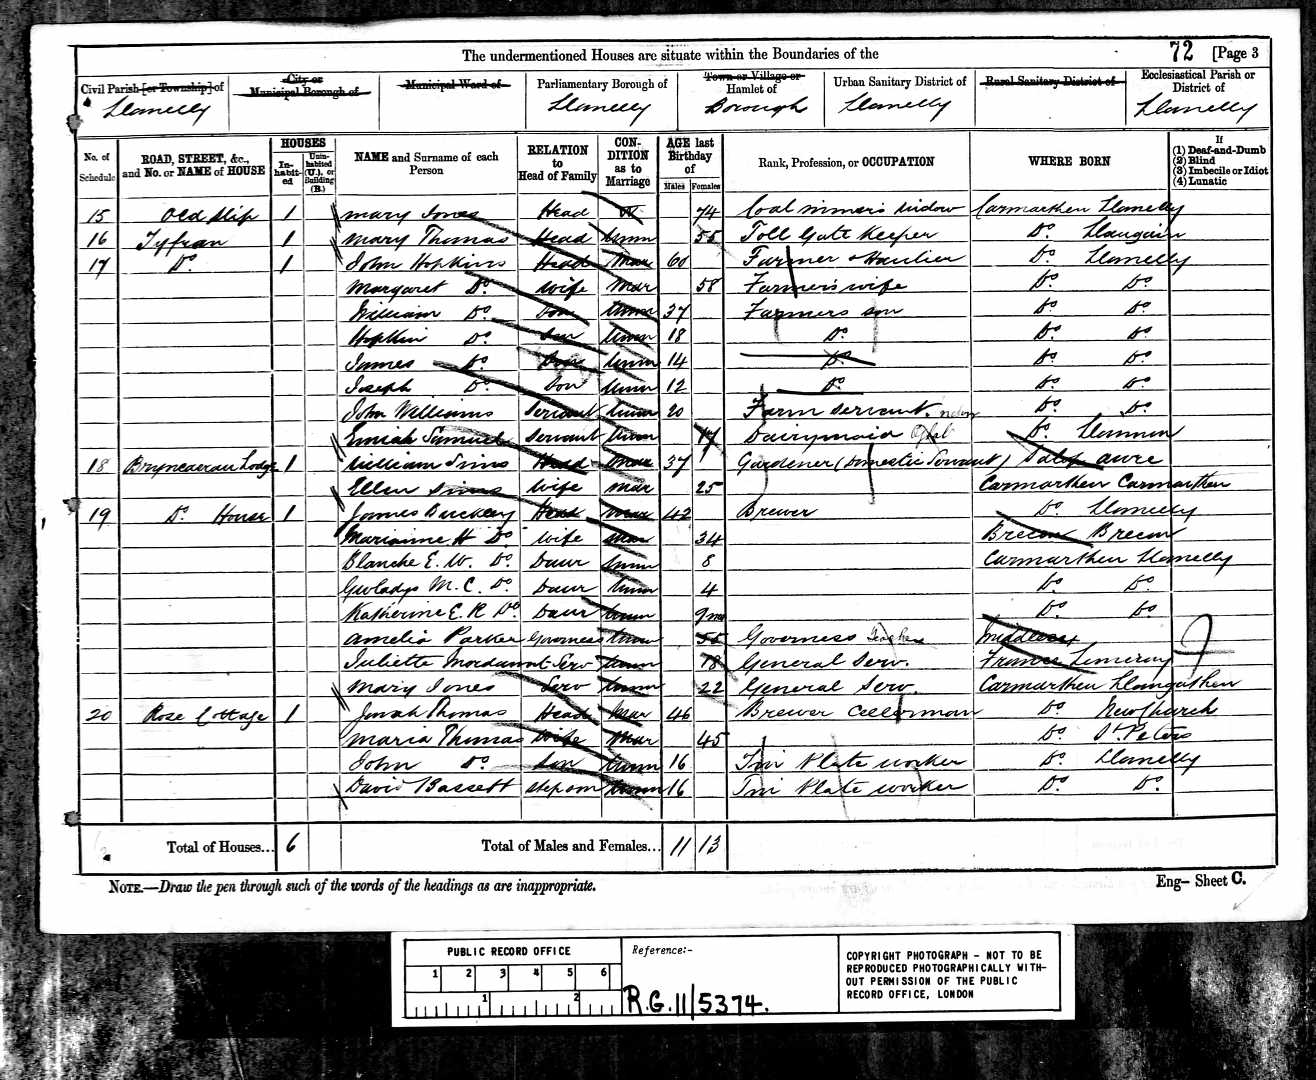 The undermentioned Houses are situate within the Boundaries of the 72 [Page 3
Civil Parish [or Township] of City or Municipal Borough of Municipal Ward of Parliamentary Borough of Town or Village or Hamlet of Urban Sanitary District of Rural Sanitary District of Ecclesiastical Parish or District of
Llanelly Llanelly Borough Llanelly Llanelly
No. of Schedule ROAD, STREET, &c., and No. or NAME of HOUSE HOUSES In-habit-ed Unin-habited (U.), or Building (B.) NAME and Surname of each Person RELATION to Head of Family CON-DITION as to Marriage AGE last Birthday of Males Females Rank, Profession, or OCCUPATION WHERE BORN If (1) Deaf-and-Dumb (2) Blind (3) Imbecile or Idiot (4) Lunatic
15 Old Slip 1 Mary Jones Head W 74 Coal miner's widow Carmarthen Llanelly
16 Tyfran 1 Mary Thomas Head Unm 55 Toll Gate Keeper Do Llangain
17 Do 1 John Hopkins Head Mar 60 Farmer & Haulier Do Llanelly
Margaret Do Wife Mar 58 Farmer's wife Do Do
William Do Son Unm 37 Farmers son Do Do
Hopkin Do Son Unm 18 Do Do Do
James Do Son Unm 14 Do Do Do
Joseph Do Son Unm 12 Do Do Do
John Williams Servant Unm 20 Farm servant Do Do
Samuel Servant Unm 17 Dairymaid Do Llannon
18 Lodge 1 William Sims Head Mar 37 Gardener (Domestic Servant)
Ellen Sims Wife Mar 25 Carmarthen Carmarthen
19 Do House 1 James Buckley Head Mar 42 Brewer Do Llanelly
Marianne H Do Wife Mar 34 Brecon Brecon
Blanche E. W. Do Daur Unm 8 Carmarthen Llanelly
Gwladys M. C. Do Daur Unm 4 Do Do
Katherine E. R Do Daur Unm 9mo Do Do
Amelia Parker Governess Unm 55 Governess Teacher Middlesex
Juliette Mordaunt Serv Unm 18 General Serv. France
Mary Jones Serv Unm 22 General Serv. Carmarthen Llangathen
20 Rose Cottage 1 Jonah Thomas Head Mar 46 Brewer Cellerman Do Newchurch
Maria Thomas Wife Mar 45 Do St Peters
John Do Son Unm 16 Tin Plate worker Do Llanelly
David Bassett stepson Unm 16 Tin Plate worker Do Do
Total of Houses... 6 Total of Males and Females... 11 13
NOTE.—Draw the pen through such of the words of the headings as are inappropriate.
Eng– Sheet C.
PUBLIC RECORD OFFICE
1 2 3 4 5 6
1 2
Reference:-
R.G. 11/5374.
COPYRIGHT PHOTOGRAPH - NOT TO BE
REPRODUCED PHOTOGRAPHICALLY WITH-
OUT PERMISSION OF THE PUBLIC
RECORD OFFICE, LONDON